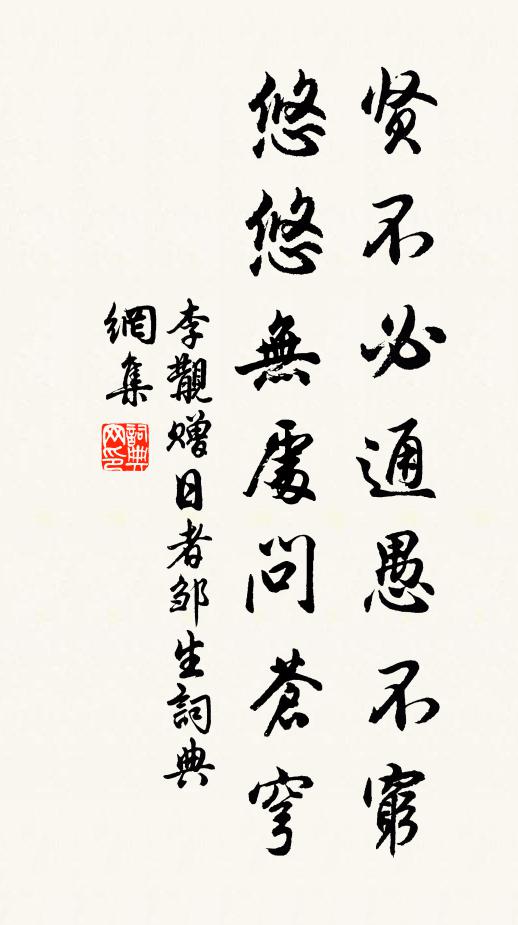 贤不必通愚不窮
悠悠無處問蒼穹
李覯赠日者邹生詞典
網集
詞典網印